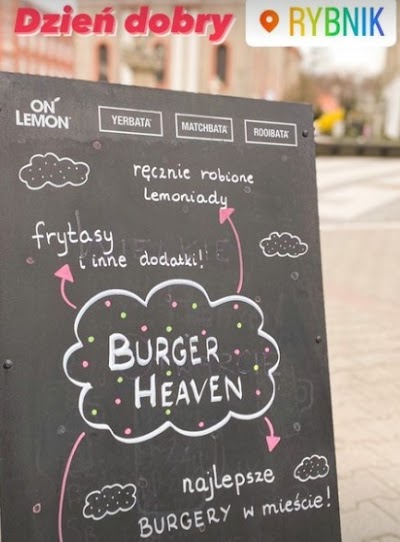 Dzień dobry
RYBNIK
ON LEMON
YERBATA
MATCHBATA
ROOIBATA
ręcznie robione
lemoniady
frytasy
i inne dodatki!
BURGER
HEAVEN
najlepsze
BURGERY w mieście!